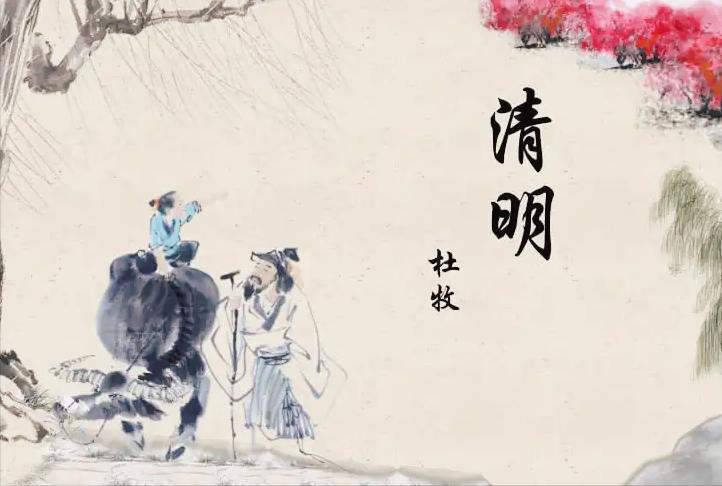 清明
杜牧